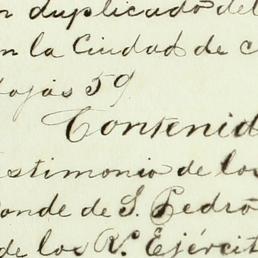 n duplicado del
n la Ciudad de c
ojas 59
Contenid
estimonio de los
onde de S. Pedro
de los Rs. Ejércit